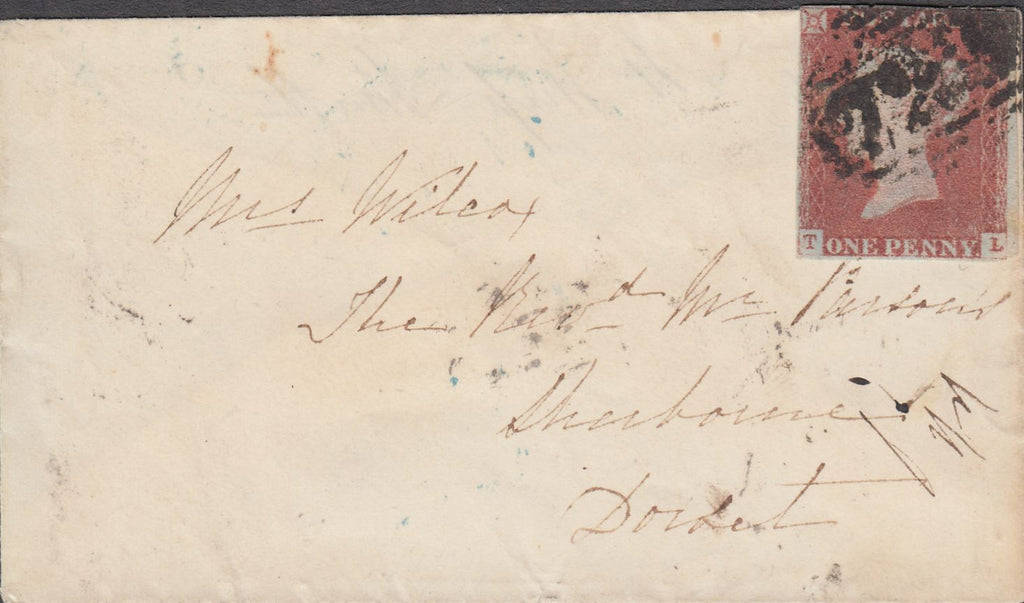 T ONE PENNY. L
Mrs Wilcox
The Revd Mr Parsons
Sherborne
Dorset